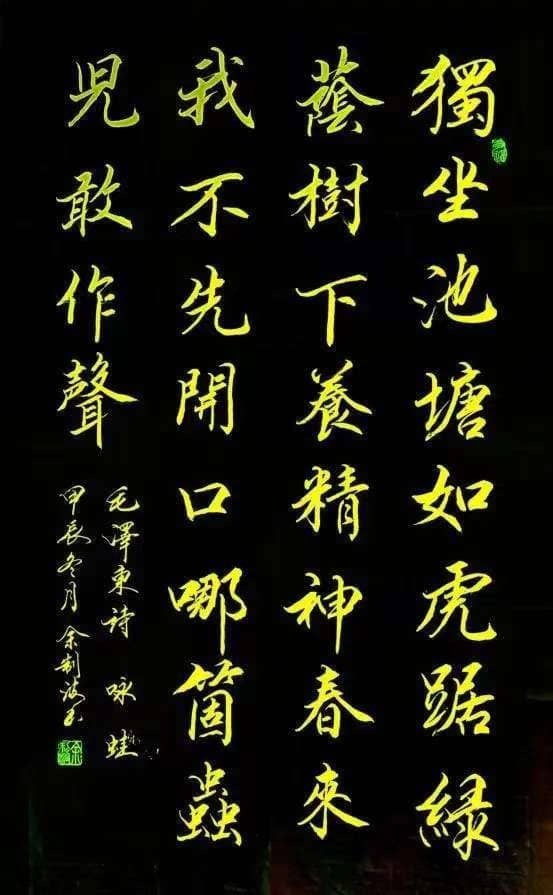 獨坐池塘如虎踞綠
蔭樹下養精神春來
我不先開口哪箇蟲
兒敢作聲
毛澤東詩 咏蛙
甲辰冬月 余制